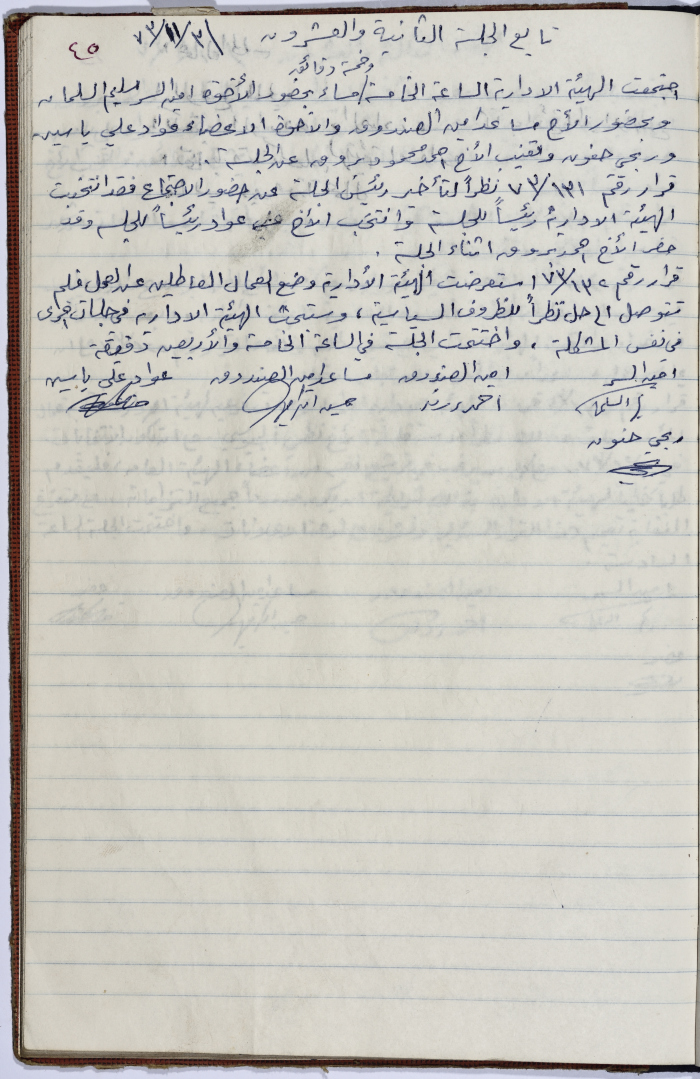 ٤٥
تابع الجلسة الثانية والعشرون ٧٣/١١/٣١
وخمسة دقائق
اجتمعت الهيئة الادارية الساعة الخامسة/مساء بحضور الأخوة امين السر سليم السلمان
وبحضور الأخ مساعد امين الصندوق والاخوة الاعضاء عواد علي ياسين
وربحي حنون وتغيب الأخ احمد محمود عن الجلسة .
قرار رقم ٧٣/١٣١ نظراً لتأخر رئيس الجلسة عن حضور الاجتماع فقد انتخبت
الهيئة الادارية رئيساً للجلسة وانتخب الأخ عواد رئيساً للجلسة وقد
حضر الأخ احمد اثناء الجلسة .
قرار رقم ٧٣/١٣٢ استعرضت الهيئة الأدارية وضع العمال العاطلين عن العمل فلم
تتوصل الى حل نظراً للظروف السياسية ، وستبحث الهيئة الادارية في جلسات اخرى
في نفس المشكلة . واختتمت الجلسة في الساعة الخامسة والأربعين دقيقة
امين السر امين الصندوق مساعد امين الصندوق عواد علي ياسين
السلمان احمد
ربحي حنون